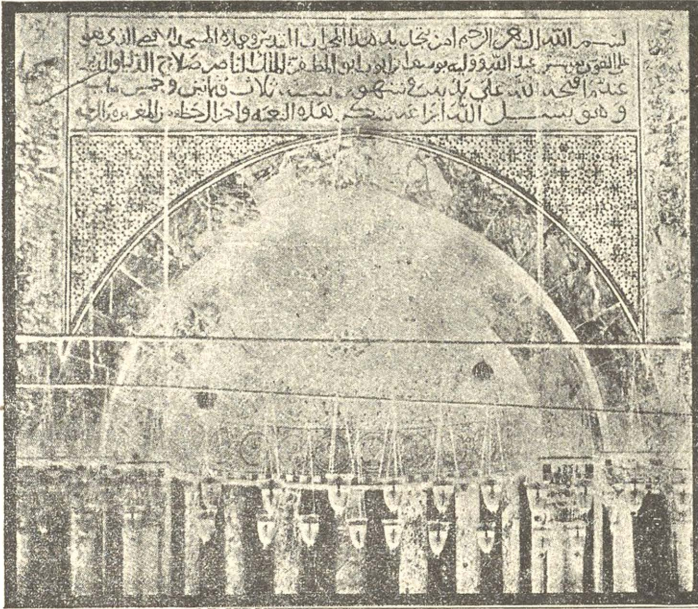 بسم الله الرحمن الرحيم امر بتجديد هذا المحراب المقدس وعمارة المسجد الاقصى الذي هو
على التقوى مؤسس عبد الله ووليه يوسف بن ايوب ابو المظفر الملك الناصر صلاح الدنيا والدين
عندما فتحه الله على يديه في شهور سنة ثلاث وثمانين وخمس مايه
وهو يسل الله ايزاعه شكر هذه النعمة واجزال حظه من المغفرة والرحمة